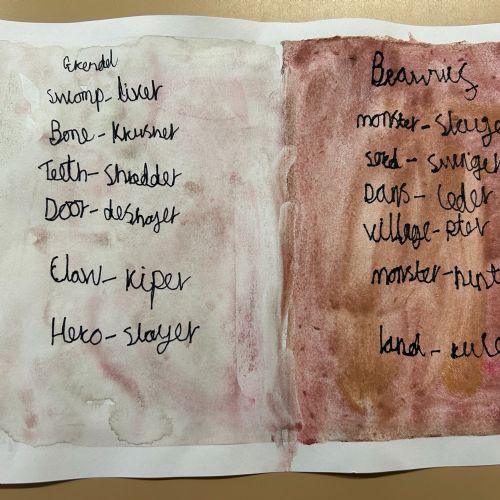 Grendel
swomp-liver
Bone-Krusher
Teeth-shredder
Door-deshojer
Claw-riper
Hero-slayer
Beawries
monster-slaye
sord-swinger
Dans-leder
village-pter
monster-hunt
land-rule